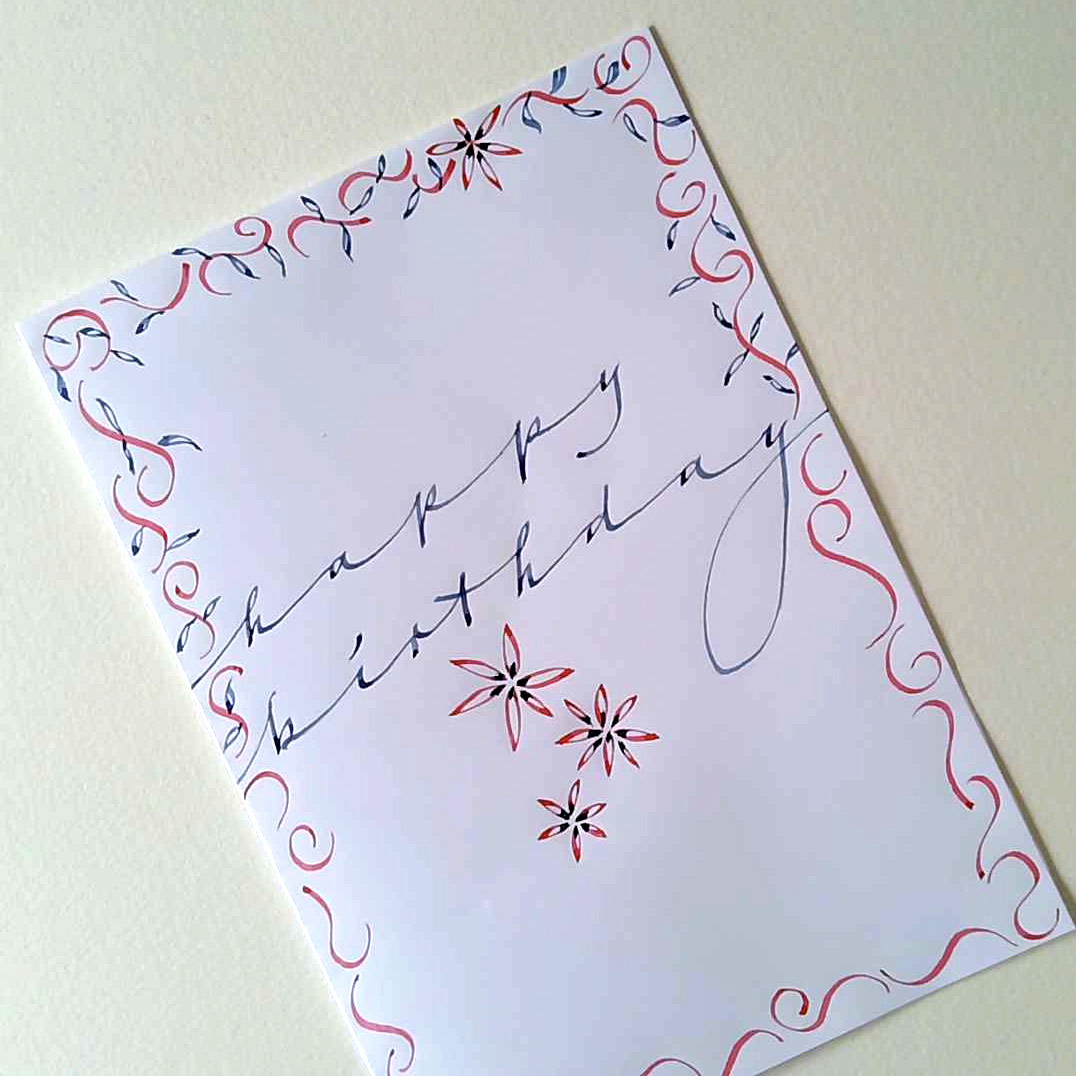 happy
birthday